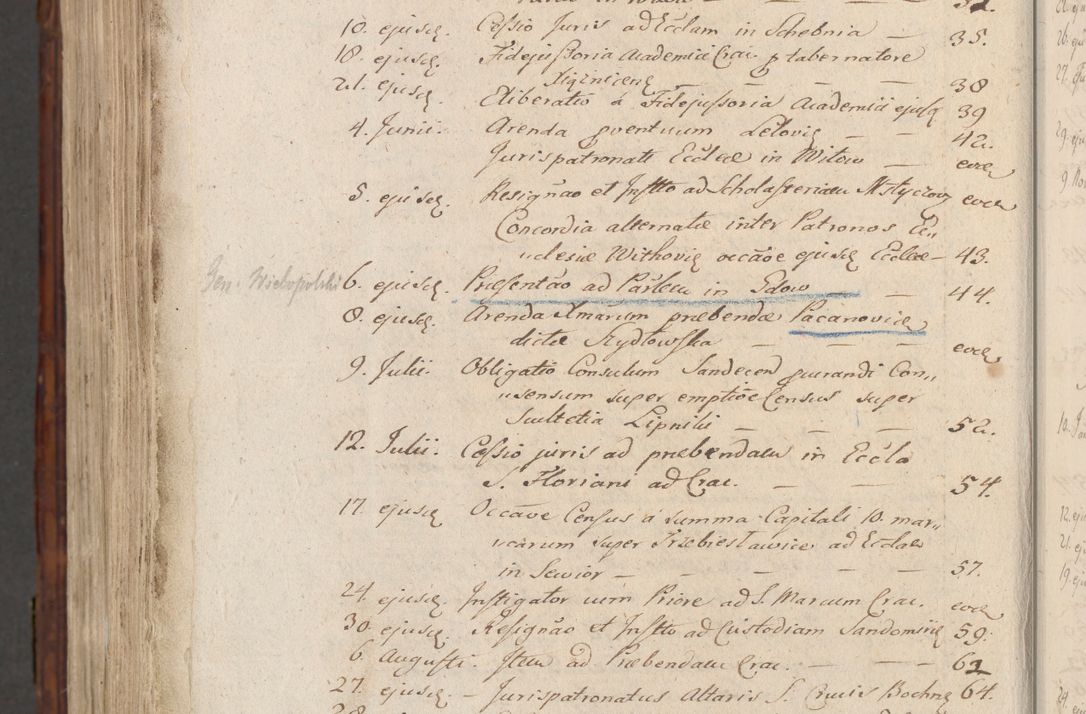 10. ejusdę. Cessio Juris ad Eccłam in Schebnia — 35.
18. ejusdę. Fidejussoria Academiæ Crac. p tabernatore
21. ejusdę. 38
Eliberatio á Fidejussoria Academiæ ejusdę 39
4. Junii. Arenda pventuum Letovię — — 42.
Jurispatronatę Eccłæ in Witow — eodę
5. ejusdę. Resignão et Insttto ad Scholasteriam eodę
Concordia alternatæ inter Patronos Ec„
„clesiæ Withovię occãoe ejusdę Eccłæ — 43.
Gen. Wielopolski 6. ejusdę. Præsentão ad Parłem in Gdow — — 44.
8. ejusdę. Arenda præbendæ Pacanoviæ
dictæ Szydłowska — — — — eodę
9. Julii. Obligatio Consulum Sandecen Con„
„sensum super emptiõe Census super
Scultetia Lipniki — — — 52.
12. Julii. Cessio juris ad præbendam in Eccła
S. Floriani ad Crac. — — — 54.
17. ejusdę Occãoe Census á summa Capitali 10. mar„
„carum super Trzebiesławice ad Eccłæ
in Sewior — — — — — 57.
24. ejusdę. Instigator cum Priore ad S. Marcum Crac. eodę
30. ejusdę. Resignão et Insttto ad Custodiam Sandomirię 59.
6. Augusti. Item ad Præbendam Crac. — — — 62
27. ejusdę. — Jurispatronatus Altaris S. Crucis Bochnę 64.